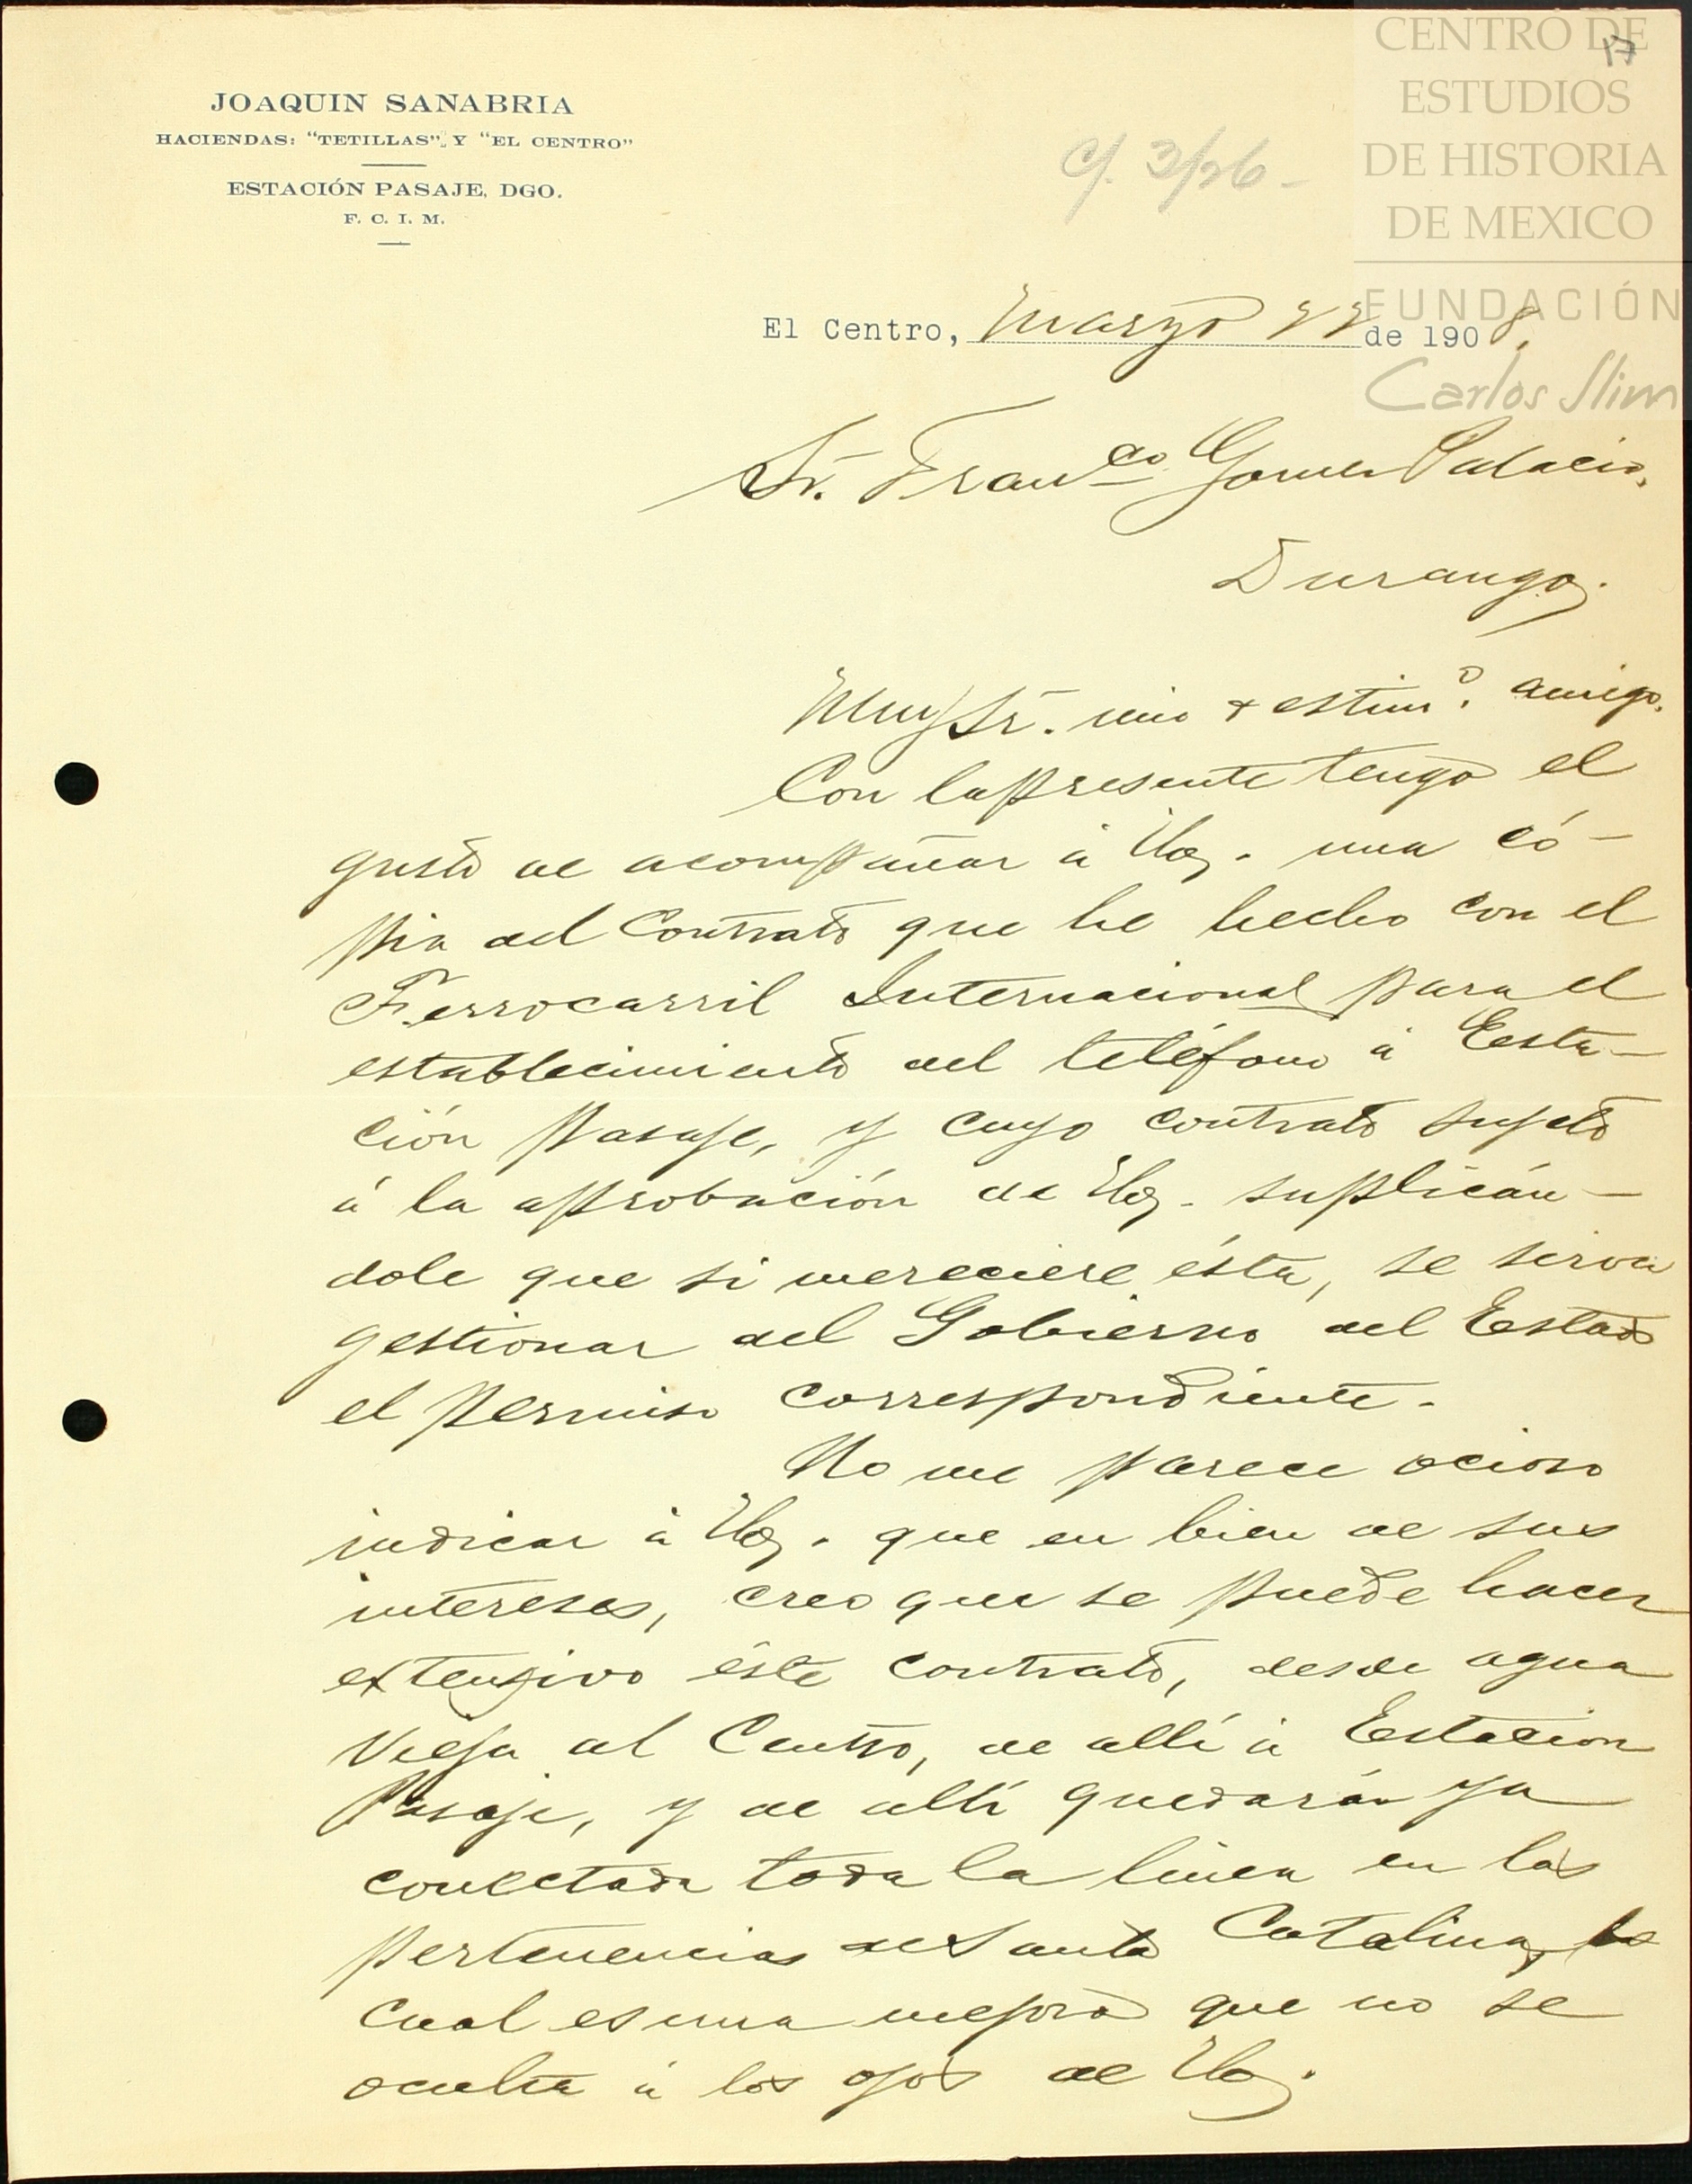 17
CENTRO DE
ESTUDIOS
DE HISTORIA
DE MEXICO
FUNDACIÓN
Carlos Slim
JOAQUIN SANABRIA
HACIENDAS: "TETILLAS" Y "EL CENTRO"
ESTACIÓN PASAJE, DGO.
F. C. I. M.
C/. 3/26-
El Centro, Marzo 22 de 1908.
Sr. Franco Gomez Palacio,
Durango.
Muy Sr. mio y estimo. amigo.
Con la presente tengo el
gusto de acompañar á Ud. una có-
pia del Contrato que he hecho con el
Ferrocarril Internacional para el
establecimiento del teléfono á Esta-
ción Pasaje, y cuyo contrato sujeto
á la aprobación de Ud. suplicán-
dole que si mereciere ésta, se sirva
gestionar del Gobierno del Estado
el permiso correspondiente.
No me parece ocioso
indicar á Ud. que en bien de sus
intereses, creo que se puede hacer
extensivo éste contrato, desde agua
Vieja al Centro, de allí á Estacion
Pasaje, y de allí quedará ya
conectada toda la linea en las
pertenencias de Santa Catalina, lo
cual es una mejora que no se
oculta á los ojos de Ud.